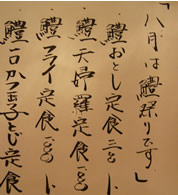 「八月は鱧祭りです」
鱧おとし定食
鱧天婦羅定食
鱧フライ定食
鱧一口かつ玉子とじ定食